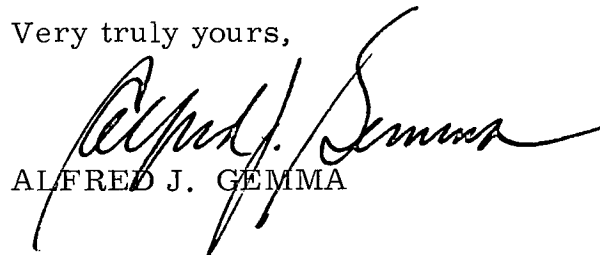 Very truly yours,
Alfred J. Gemma
ALFRED J. GEMMA